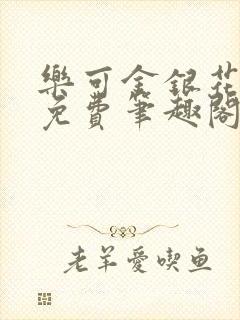 樂可金銀花
免費筆趣閣
老羊愛喫鱼